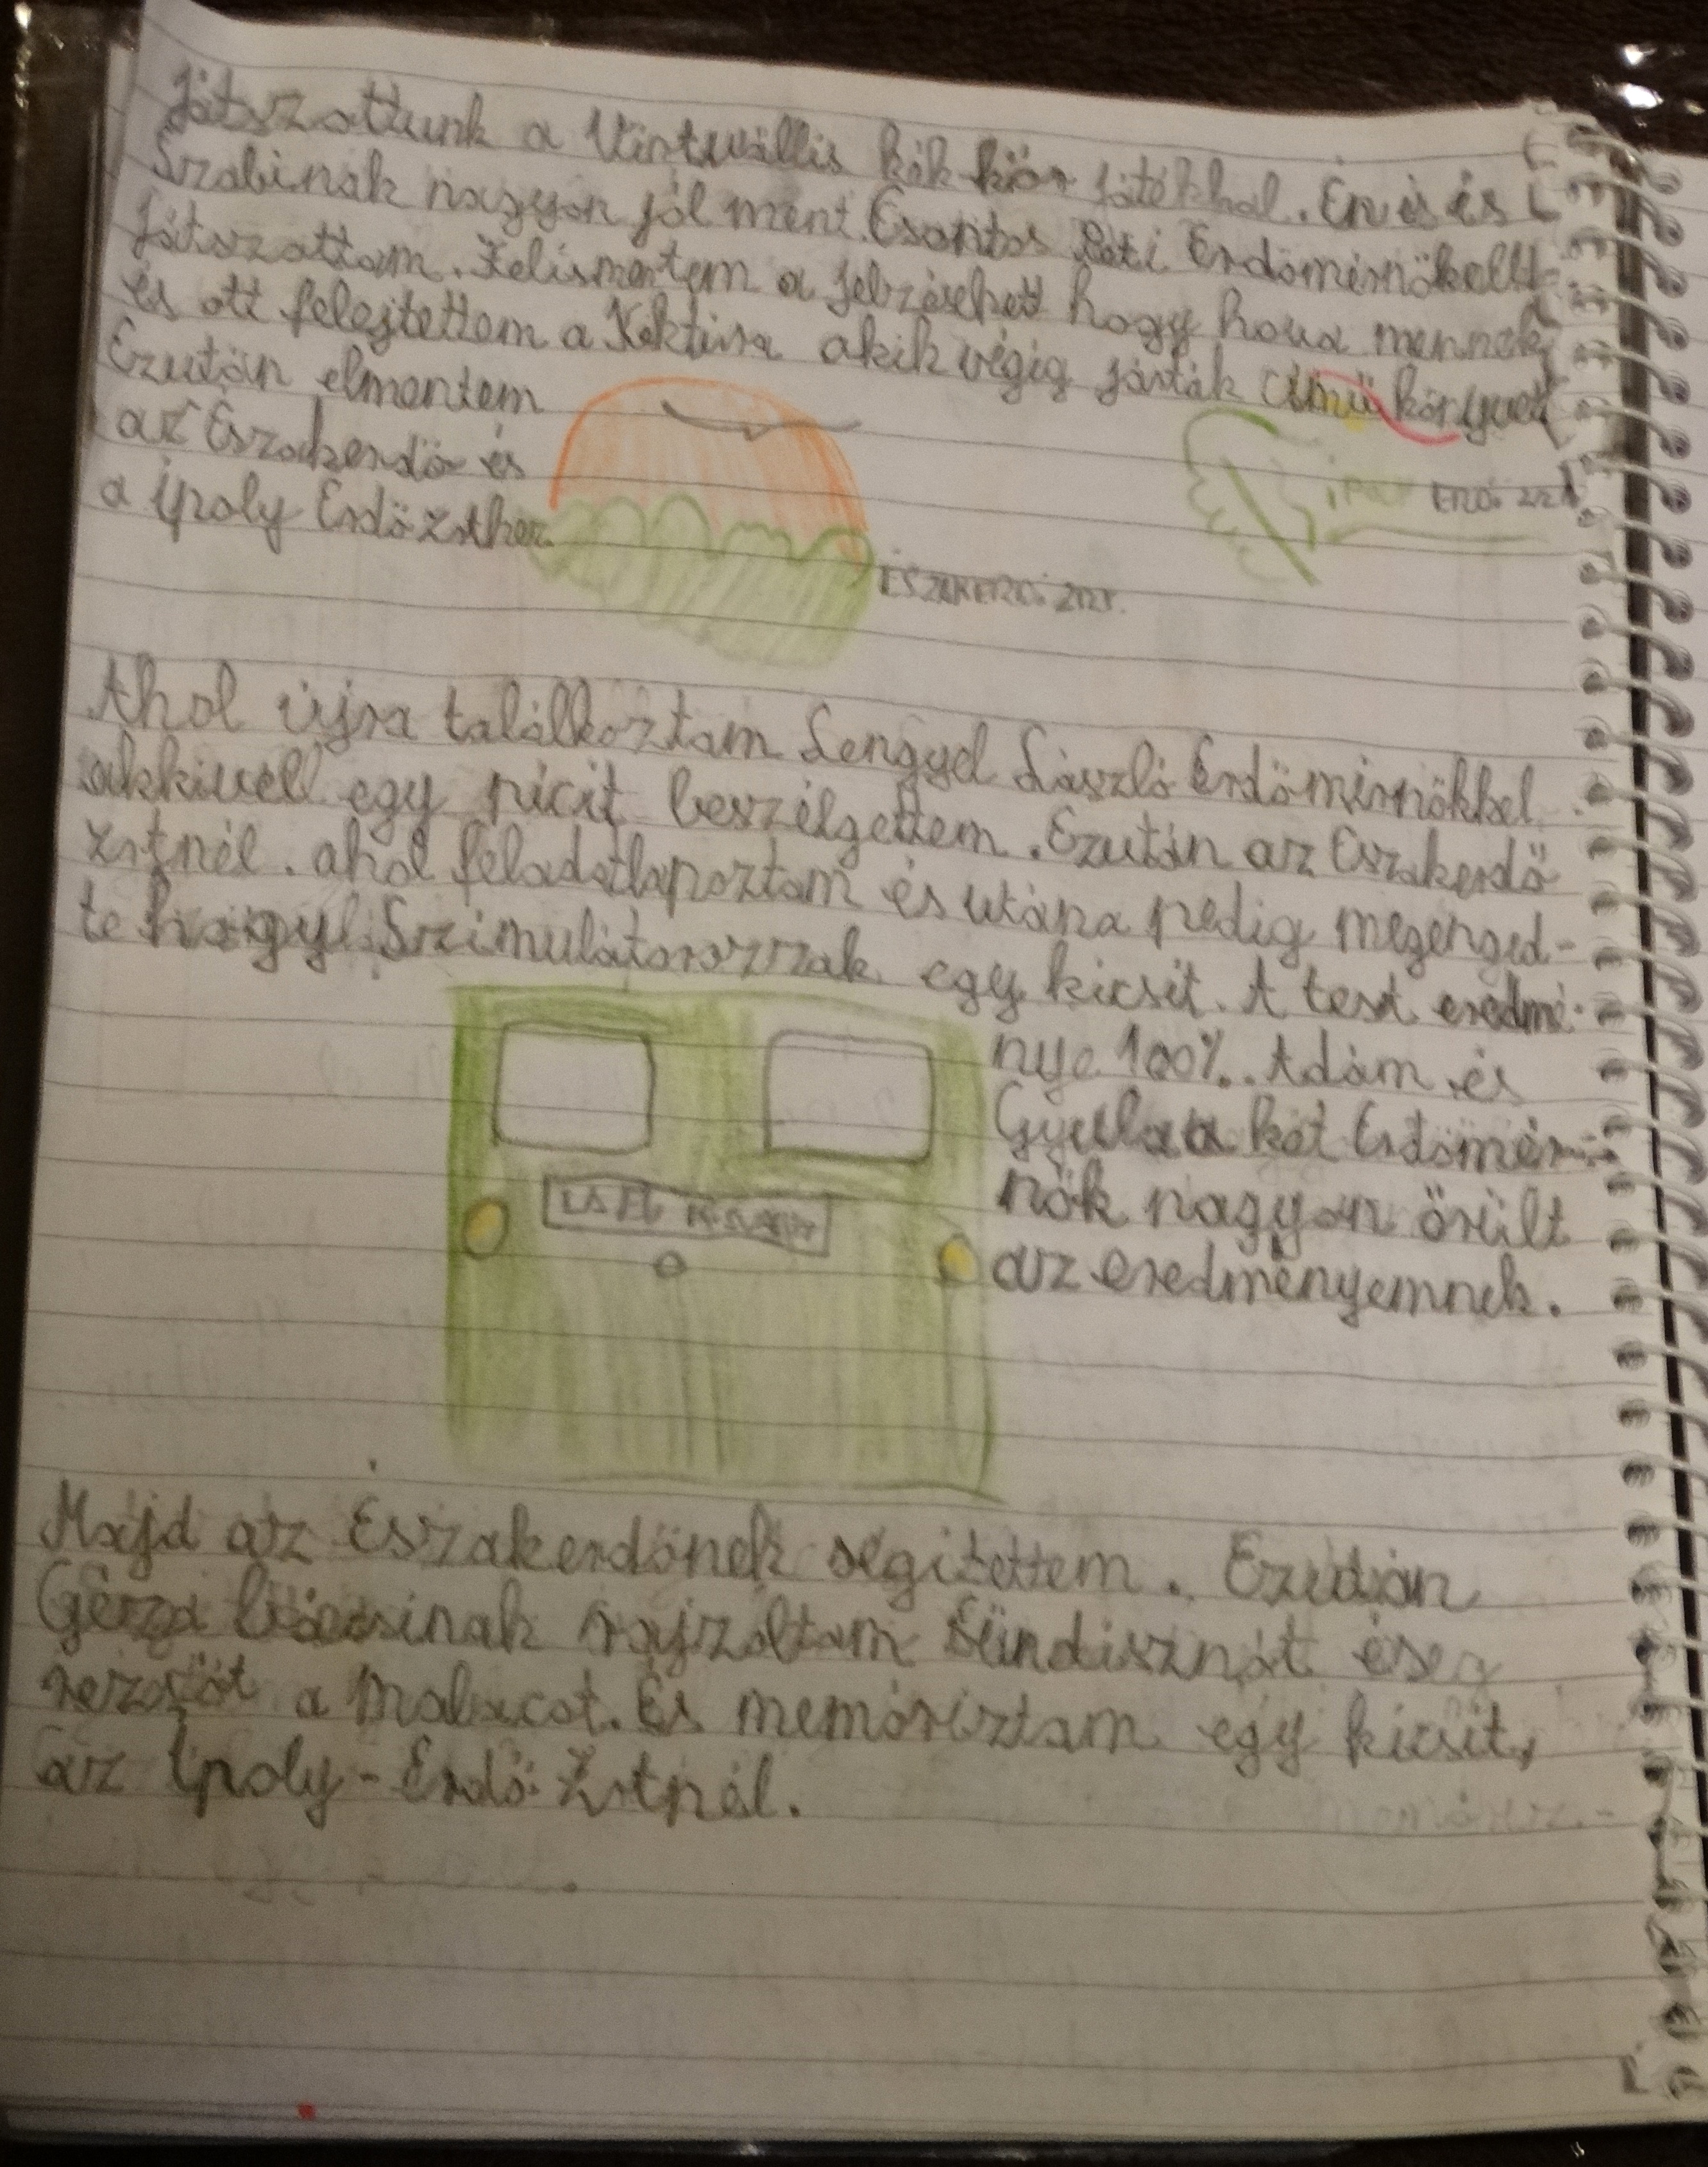 Játszottunk a Virtuállis kék kör játékkal. Én és
Szabinak nagyon jól ment. Csontos Peti Erdőmérnökell
Játszottam. Felismertem a jelzéseket hogy hova mennek
és ott felejtettem a Kéktúra akik végig járták című könyvet
Ezután elmentem
az Északerdő és
a ipoly Erdő Zrthez.
IPOLY ERDŐ ZRT.
ÉSZAKERDŐ ZRT.
Ahol újra találkoztam Lengyel László Erdőmérnökkel
akkivell egy picit beszélgettem. Ezután az Északerdő
Zrtnél. ahol feladatlapoztam és utána pedig megenged-
te hogy Szimulátorozzak egy kicsit. A test eredmé-
nye 100%. Ádám és
Gyula a két Erdőmér-
nök nagyon örült
az eredményemnek.
Majd az Északerdőnek segítettem. Ezután
Géza bácsinak rajzoltam Sündisznót és eg
a malacot. És memóriztam egy kicsit,
az Ipoly-Erdő Zrtnél.